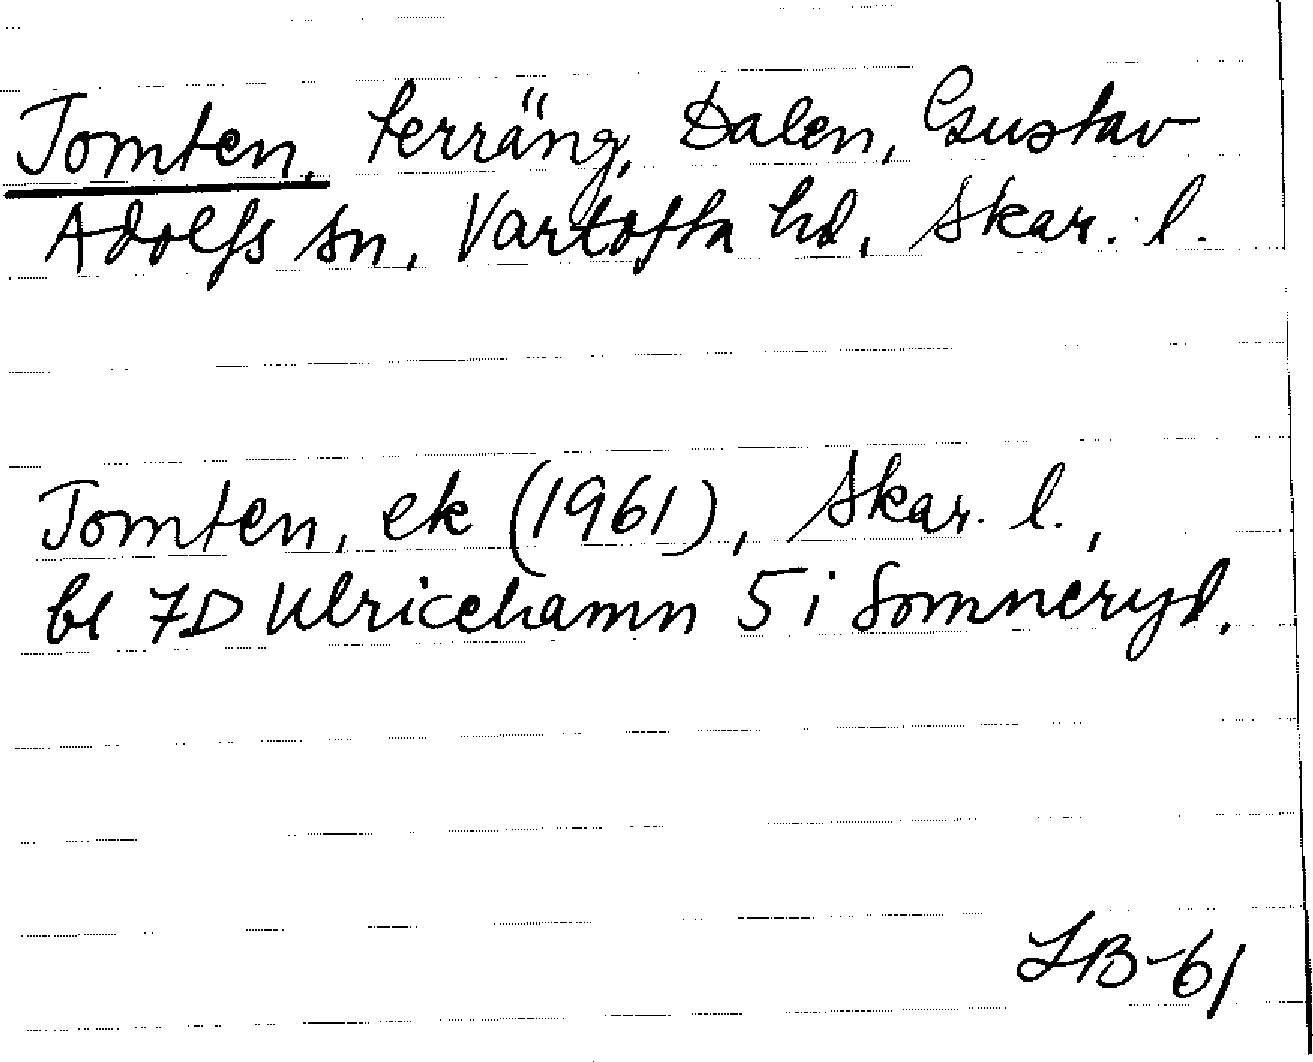 Tomten, terräng, Dalen, Gustav
Adolfs sn, Vartofta hd, Skar. l.
Tomten, ek (1961), Skar. l.,
bl 7D Ulricehamn 5 i Somneryd.
LB-61